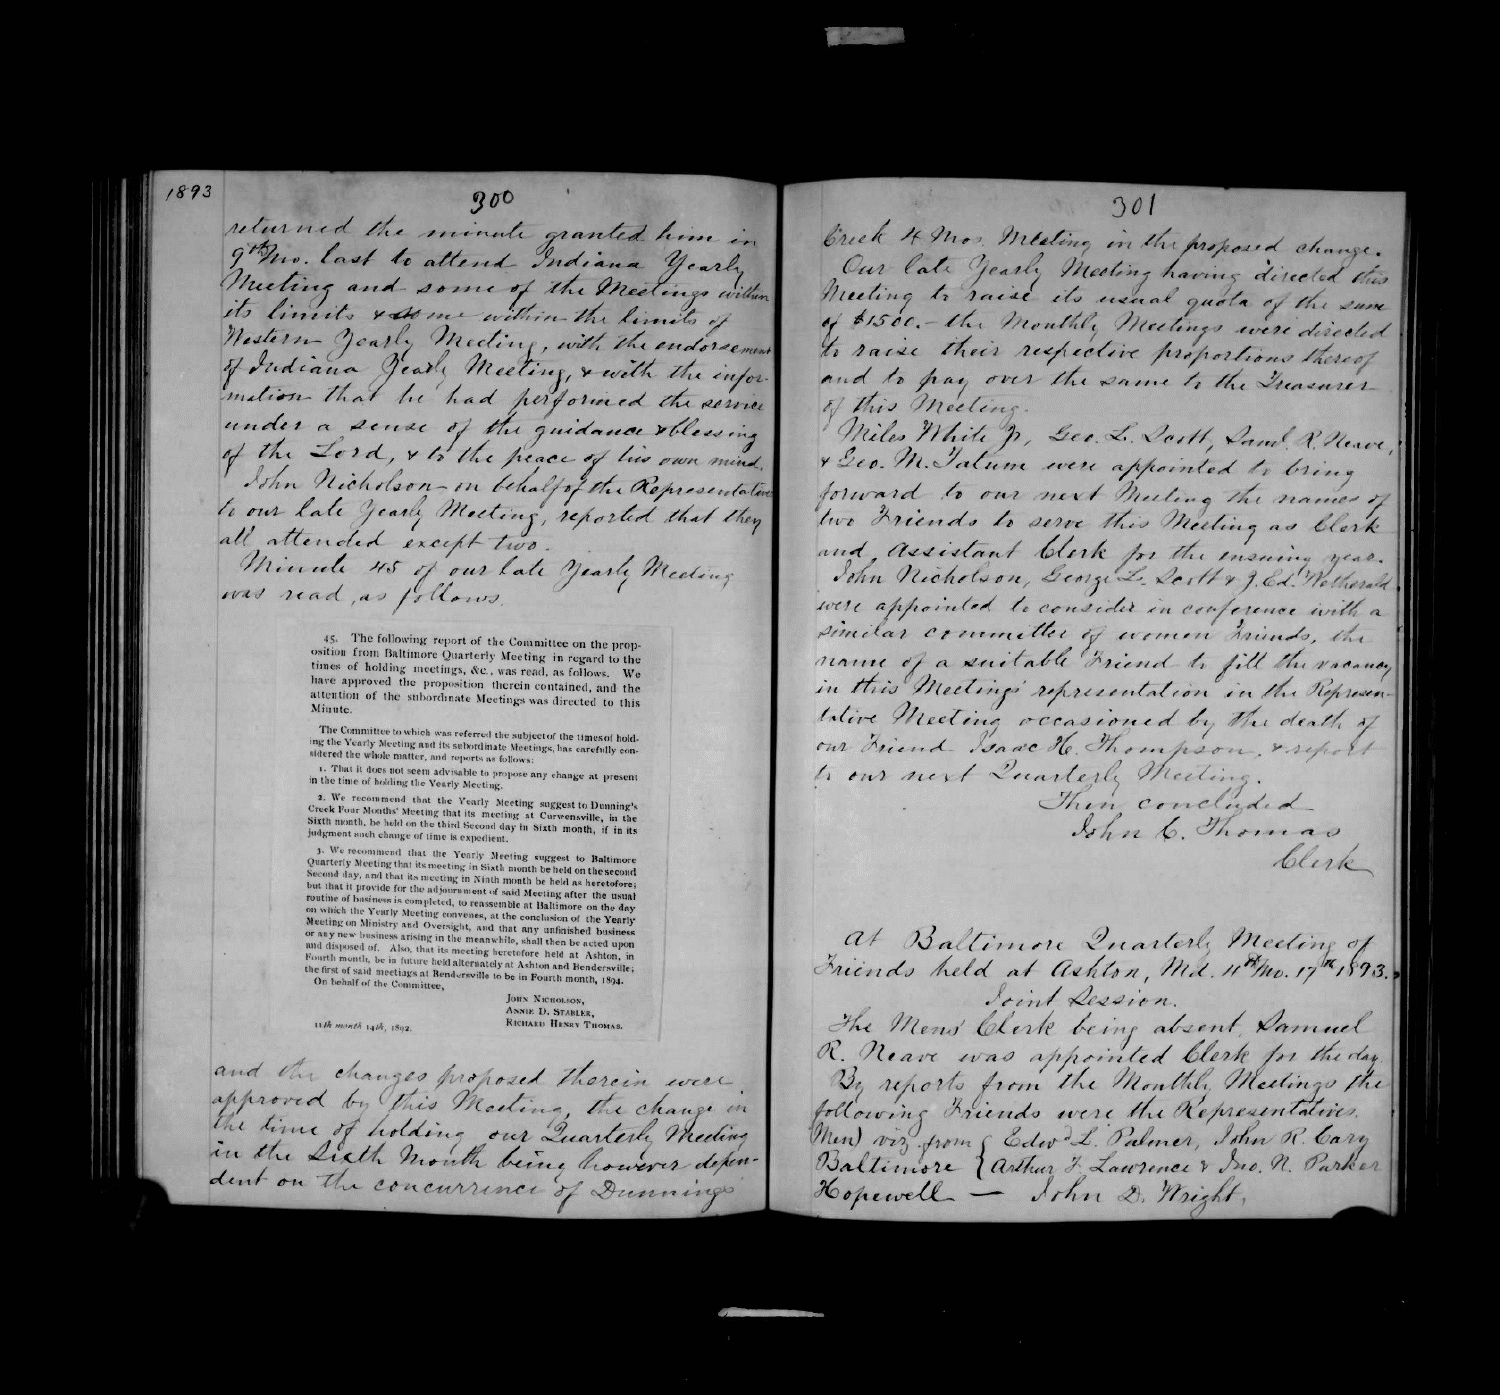 1893
300
returned the minute granted him in
9th Mo. last to attend Indiana Yearly
Meeting and some of the Meetings within
its limits & some within the limits of
Western Yearly Meeting, with the endorsement
of Indiana Yearly Meeting, & with the infor-
mation that he had performed the service
under a sense of the guidance & blessing
of the Lord, & to the peace of his own mind.
John Nicholson on behalf of the Representatives
to our late Yearly Meeting, reported that they
all attended except two.
Minute 45 of our late Yearly Meeting
was read, as follows.
45. The following report of the Committee on the prop-
osition from Baltimore Quarterly Meeting in regard to the
times of holding meetings, &c., was read, as follows. We
have approved the proposition therein contained, and the
attention of the subordinate Meetings was directed to this
Minute.
The Committee to which was referred the subject of the times of hold-
ing the Yearly Meeting and its subordinate Meetings, has carefully con-
sidered the whole matter, and reports as follows:
1. That it does not seem advisable to propose any change at present
in the time of holding the Yearly Meeting.
2. We recommend that the Yearly Meeting suggest to Dunning's
Creek Four Months' Meeting that its meeting at Curwensville, in the
Sixth month, be held on the third Second day in Sixth month, if in its
judgment such change of time is expedient.
3. We recommend that the Yearly Meeting suggest to Baltimore
Quarterly Meeting that its meeting in Sixth month be held on the second
Second day, and that its meeting in Ninth month be held as heretofore;
but that it provide for the adjournment of said Meeting after the usual
routine of business is completed, to reassemble at Baltimore on the day
on which the Yearly Meeting convenes, at the conclusion of the Yearly
Meeting on Ministry and Oversight, and that any unfinished business
or any new business arising in the meanwhile, shall then be acted upon
and disposed of. Also, that its meeting heretofore held at Ashton, in
Fourth month, be in future held alternately at Ashton and Bendersville;
the first of said meetings at Bendersville to be in Fourth month, 1894.
On behalf of the Committee,
John Nicholson,
Annie D. Stabler,
Richard Henry Thomas.
11th month 14th, 1892.
and the changes proposed therein were
approved by this Meeting, the change in
the time of holding our Quarterly Meeting
in the Sixth Month being however depen-
dent on the concurrence of Dunnings
301
Creek 4 Mos. Meeting in the proposed change.
Our late Yearly Meeting having directed this
Meeting to raise its usual quota of the sum
of $1500.- the Monthly Meetings were directed
to raise their respective proportions thereof
and to pay over the same to the Treasurer
of this Meeting.
Miles White Jr, Geo. L. Scott, Saml. R. Neave,
& Geo. M. Tatum were appointed to bring
forward to our next Meeting the names of
two Friends to serve this Meeting as Clerk
and Assistant Clerk for the ensuing year.
John Nicholson, George L. Scott & J. Ed. Wetherald
were appointed to consider in conference with a
similar committee of women Friends, the
name of a suitable Friend to fill the vacancy
in this Meetings' representation in the Represen-
tative Meeting occasioned by the death of
our Friend Isaac H. Thompson, & report
to our next Quarterly Meeting.
Then concluded
John C. Thomas
Clerk
At Baltimore Quarterly Meeting of
Friends held at Ashton, Md. 4th Mo. 17th 1893.
Joint Session.
The Mens' Clerk being absent, Samuel
R. Neave was appointed Clerk for the day.
By reports from the Monthly Meetings the
following Friends were the Representatives.
(Men) viz from { Edwd L. Palmer, John R. Cary
Baltimore { Arthur F. Lawrence & Jno. N. Parker
Hopewell — John D. Wright,